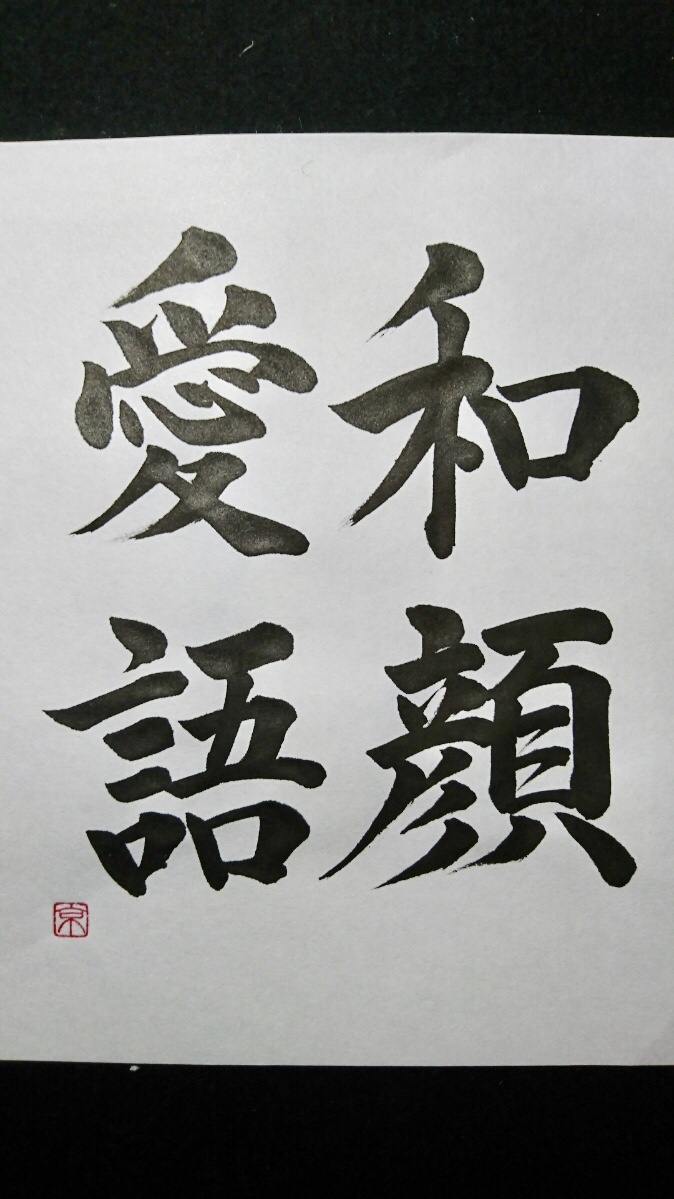 和顔
愛語
京